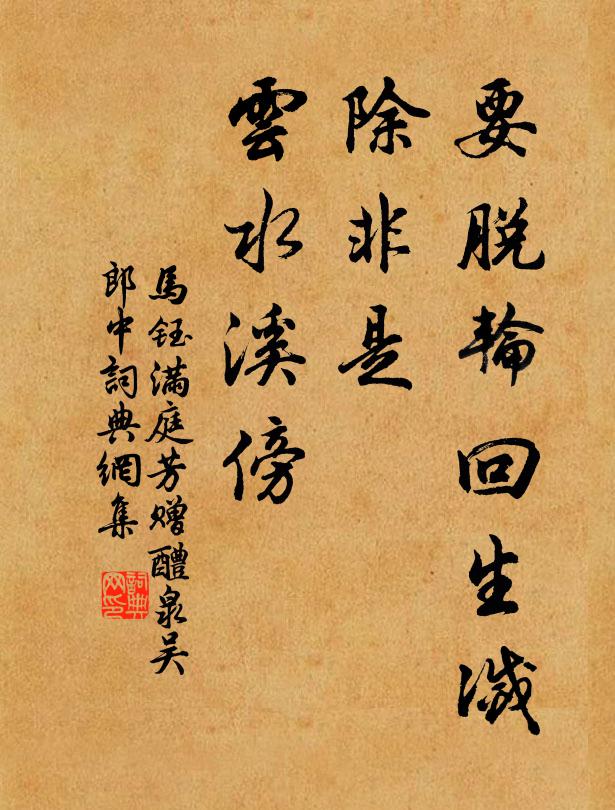 要脫輪回生滅
除非是
雲水溪傍
馬鈺滿庭芳赠醴泉吴
郎中詞典網集
詞典网印